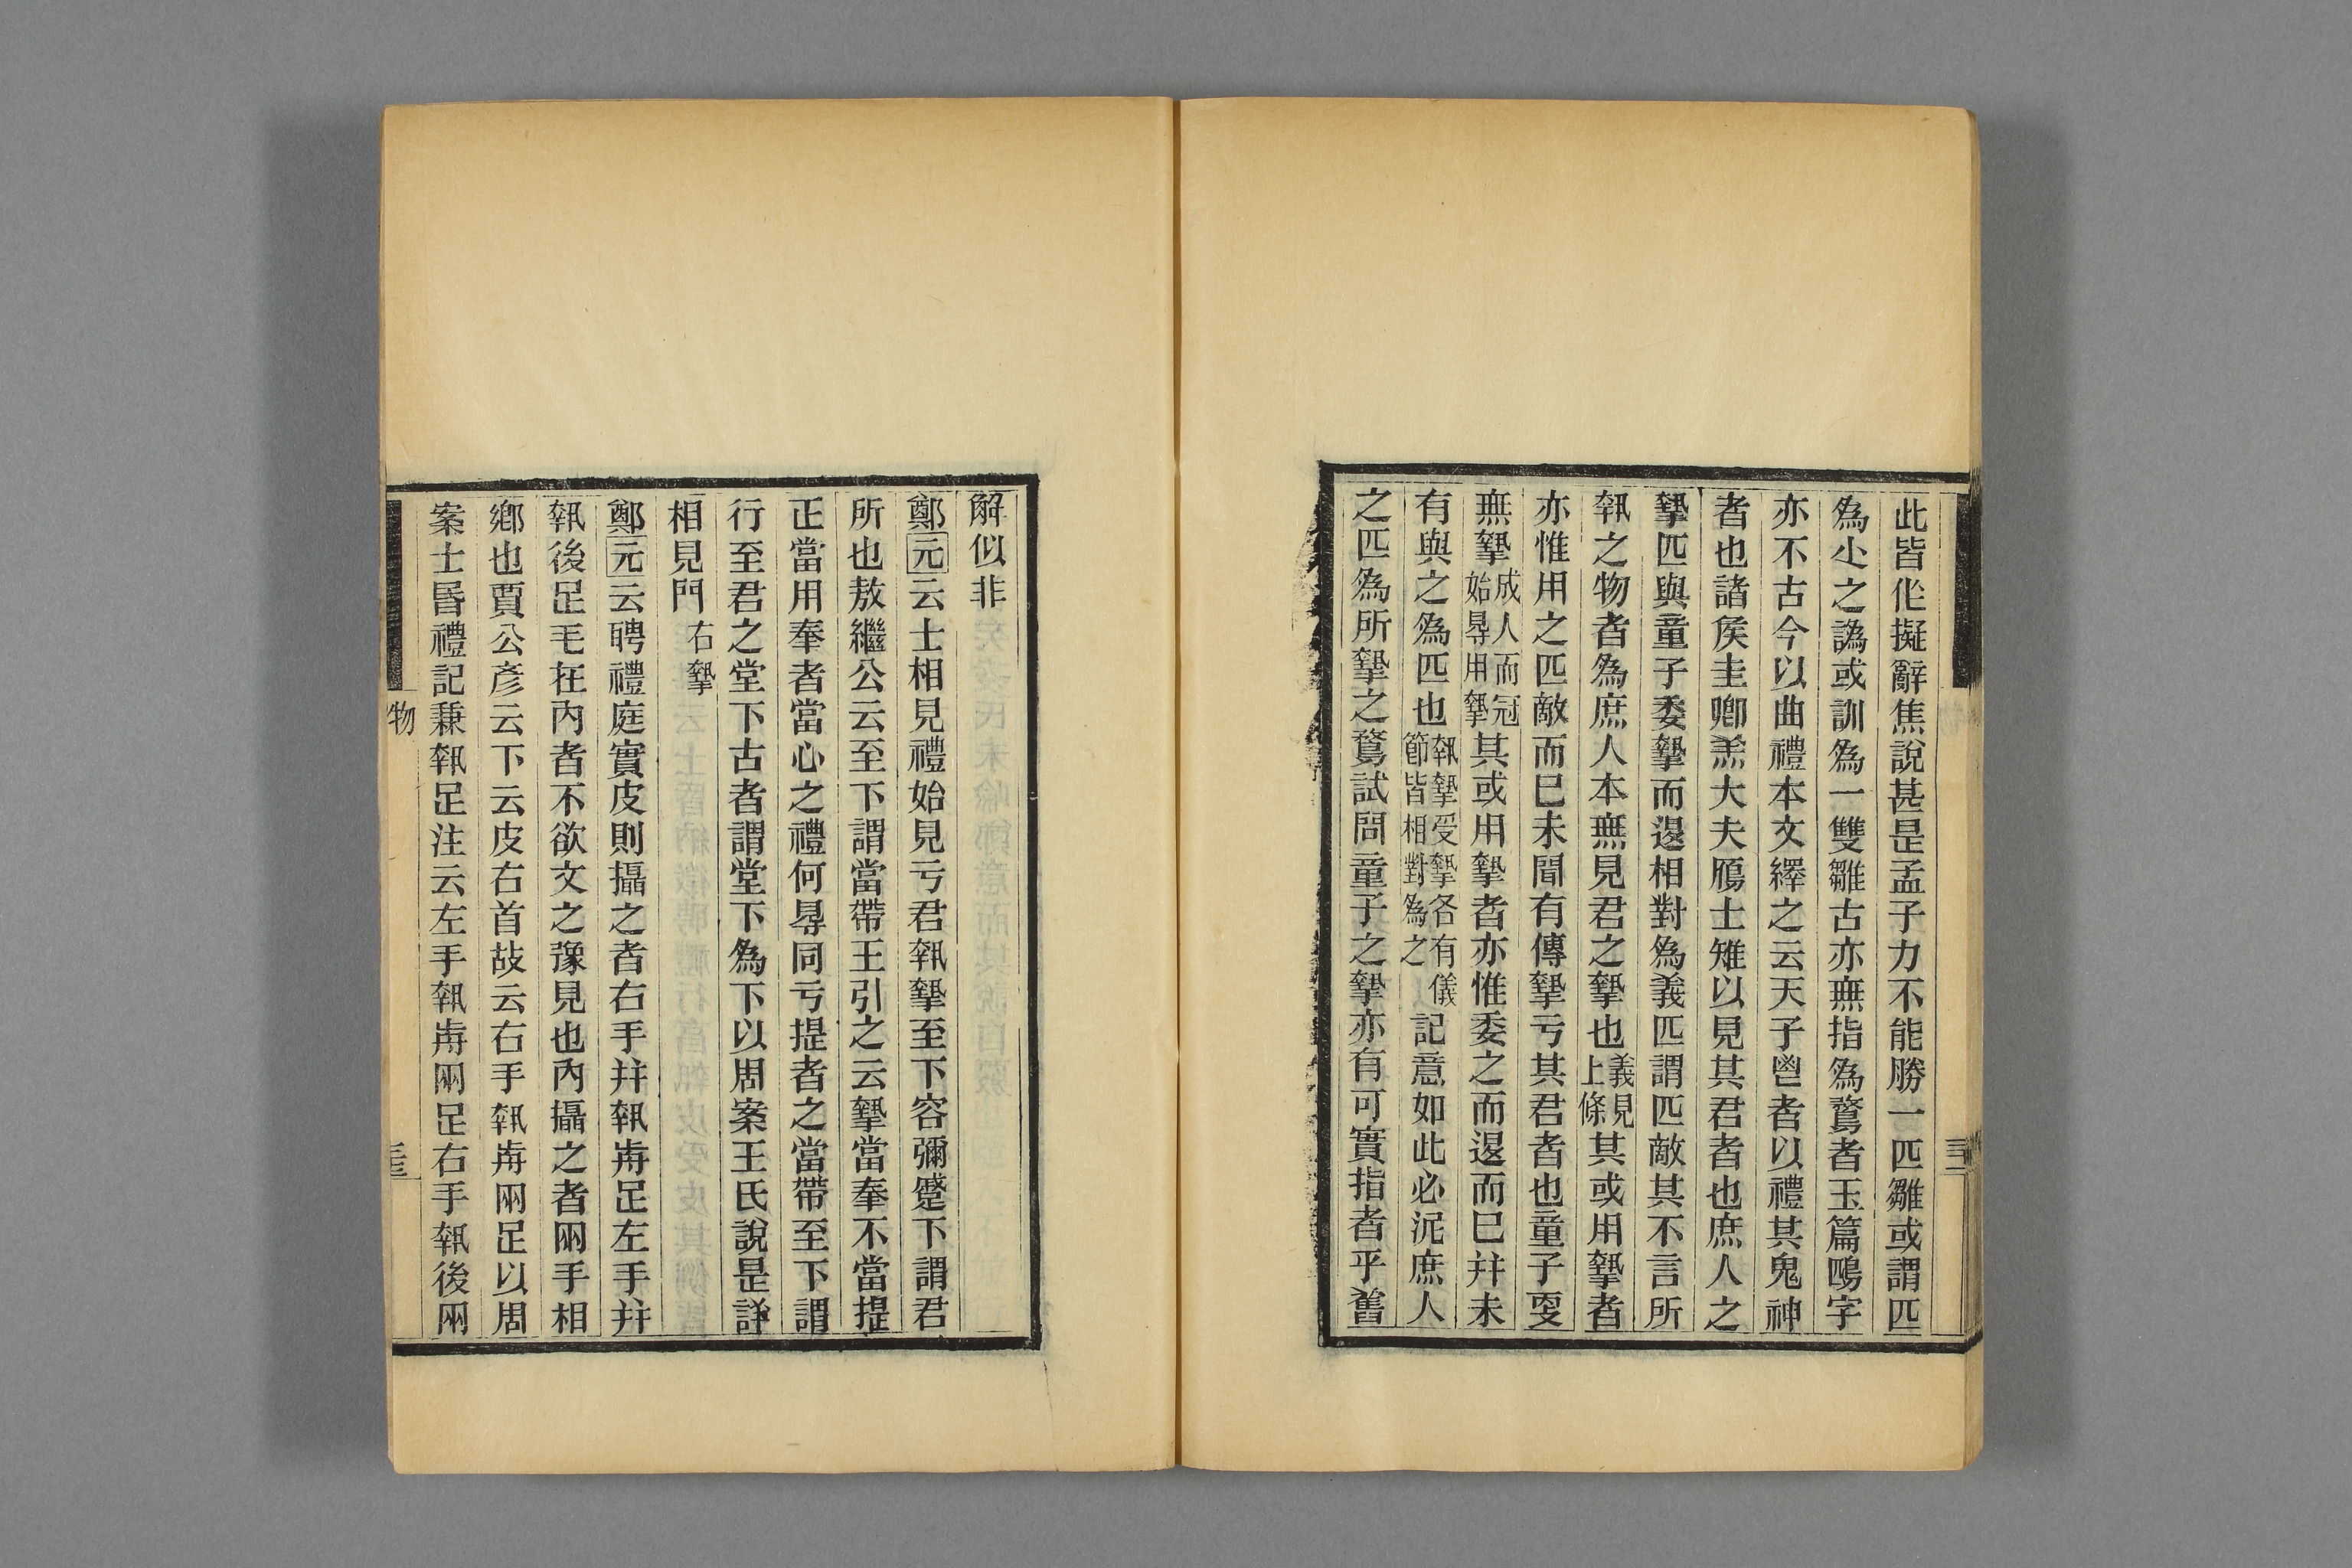 此皆佗擬辭焦說甚是孟子力不能勝一匹雛或謂匹
為尐之譌或訓為一雙雛古亦無指為鶩者玉篇鴄字
亦不古今以曲禮本文繹之云天子鬯者以禮其鬼神
者也諸矦圭卿羔大夫鴈士雉以見其君者也庶人之
摯匹與童子委摯而𨓤相對為義匹謂匹敵其不言所
執之物者為庶人本無見君之摯也義見上條其或用摯者
亦惟用之匹敵而已未聞有傳摯亏其君者也童子耎
無摯成人而冠始㝵用摯其或用摯者亦惟委之而𨓤而已幷未
有與之為匹也執摯受摯各有儀節皆相對為之記意如此必泥庶人
之匹為所摯之鶩試問童子之摯亦有可實指者乎舊
解似非
鄭元云士相見禮始見亏君執摯至下容彌蹙下謂君
所也敖繼公云至下謂當帶王引之云摯當奉不當提
正當用奉者當心之禮何㝵同亏提者之當帶至下謂
行至君之堂下古者謂堂下為下以周案王氏說是詳
相見門 右摯
鄭元云聘禮庭實皮則攝之者右手幷執歬足左手幷
執後足毛在內者不欲文之豫見也內攝之者兩手相
鄉也賈公彥云下云皮右首故云右手執歬兩足以周
案士昏禮記兼執足注云左手執歬兩足右手執後兩
物